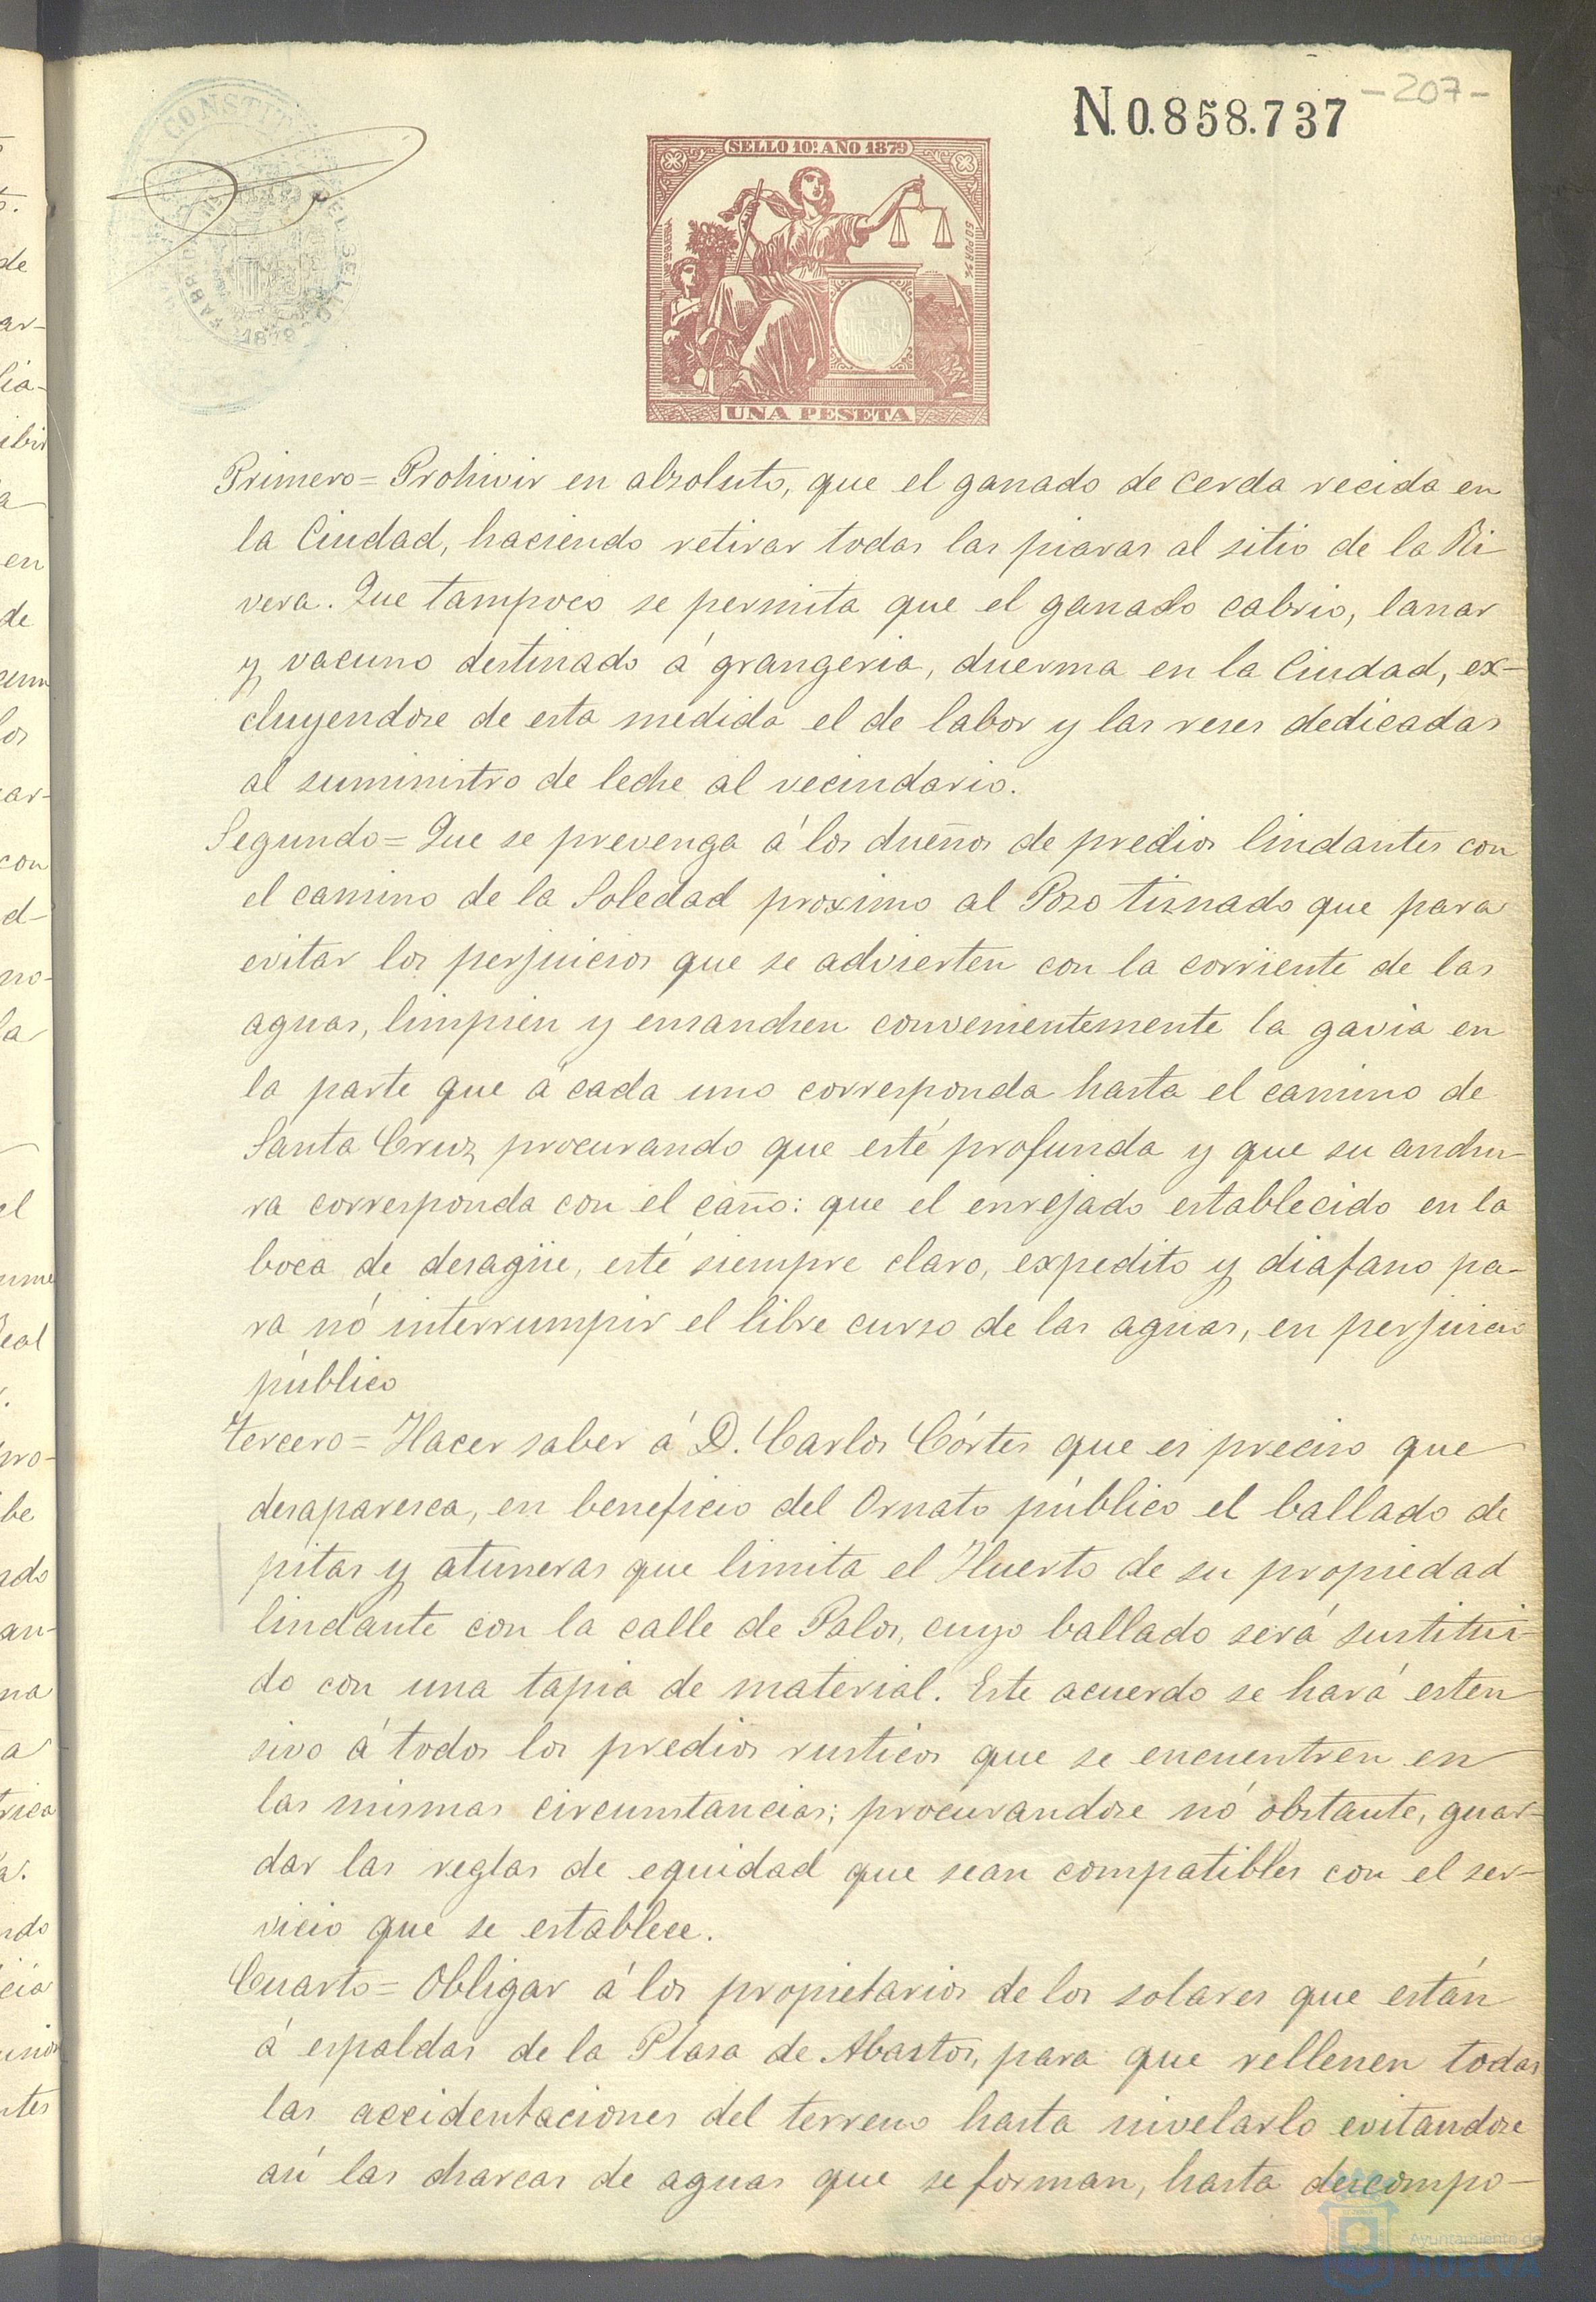 N. 0.858.737
-207-
CONSTIT
DEL SELLO
1879
SELLO 10º AÑO 1879
UNA PESETA
Primero = Prohivir en absoluto, que el ganado de cerda recida en
la Ciudad, haciendo retirar todas las piaras al sitio de la Ri
vera. Que tampoco se permita que el ganado cabrio, lanar
y vacuno destinado á grangeria, duerma en la Ciudad, ex-
cluyendose de esta medida el de labor y las reses dedicadas
al suministro de leche al vecindario.
Segundo = Que se prevenga á los dueños de predios lindantes con
el camino de la Soledad proximo al Pozo tiznado que para
evitar los perjuicios que se advierten con la corriente de las
aguas, limpien y ensanchen convenientemente la gavia en
la parte que á cada uno corresponda hasta el camino de
Santa Cruz procurando que esté profunda y que su anchu-
ra corresponda con el caño: que el enrejado establecido en la
boca de desagüe, esté siempre claro, expedito y diafano pa-
ra nó interrumpir el libre curso de las aguas, en perjuicio
público
Tercero = Hacer saber á D. Carlos Córtes que es preciso que
desaparesca, en beneficio del Ornato público el ballado de
pitas y atuneras que limita el Huerto de su propiedad
lindante con la calle de Palos, cuyo ballado será sustitui-
do con una tapia de material. Este acuerdo se hará esten
sivo á todos los predios rusticos que se encuentren en
las mismas circunstancias; procurandose nó obstante, guar-
dar las reglas de equidad que sean compatibles con el ser-
vicio que se establece.
Cuarto = Obligar á los propietarios de los solares que están
á espaldas de la Plasa de Abastos, para que rellenen todas
las accidentaciones del terreno hasta nivelarlo evitandose
asi las charcas de aguas que se forman, hasta descompo-
Ayuntamiento de
HUELVA